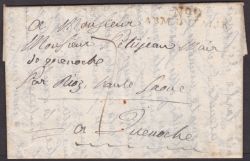 No 9
a Monsieur
Monsieur Petitjean Mair
de quenoche
Par Rioz haute Saone
a Quenoche